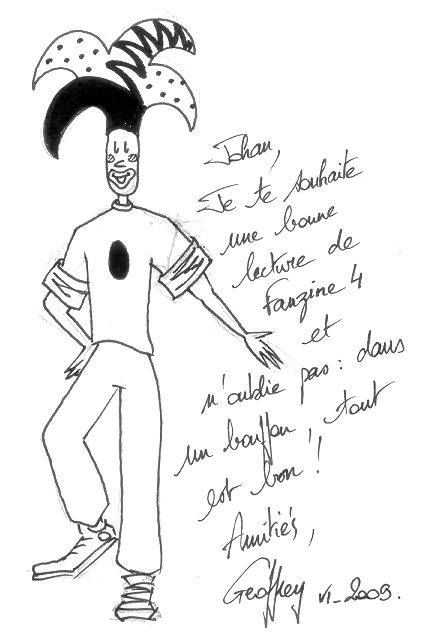 Johan,
Je te souhaite
une bonne
lecture de
Fanzine 4
et
n'oublie pas : dans
un bouffon, tout
est bon !
Amitiés,
Geoffrey VI_2009.